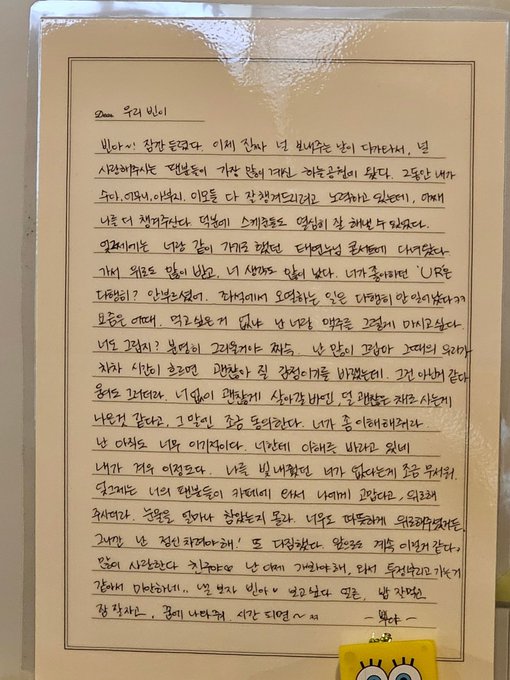 Dear 우리 빈이
빈아~! 잠깐 들렸다. 이제 진짜 널 보내주는 날이 다가와서, 널
사랑해주시는 팬분들이 가장 많이 계신 하늘공원이 왔다. 그동안 내가
수아, 어머니, 아부지, 이모들 다 잘 챙겨드리려고 노력하고 있는데, 어째
나를 더 챙겨주신다. 덕분에 스케줄도 열심히 잘 해낼 수 있었다.
엊그제에는 너랑 같이 가기로 했던 태연누님 콘서트에 다녀왔다.
가서 위로도 많이 받고, 너 생각도 많이 났다. 너가 좋아하던 'UR'은
다행히? 안부르셨어. 좌석에서 오열하는 일은 다행히 안 일어났다 ㅋㅋ
요즘은 어때. 먹고싶은 게 없냐 난 너랑 맥주를 그렇게 마시고싶다.
너도 그립지? 분명히 그리울거야 짜슥. 난 많이 그립다 그때의 우리가
차차 시간이 흐르면 괜찮아 질 감정이기를 바랬는데. 그건 아닌거 같다
형도 그러더라. 너 없이 괜찮게 살아갈 바엔, 덜 괜찮은 채로 사는게
나은것 같다고, 그 말엔 조금 동의한다. 너가 좀 이해해줘라
난 아직도 너무 이기적이다. 너한테 이해를 바라고 있네
내가 겨우 이정도다. 나를 빛내줬던 너가 없다는게 조금 무서워.
엊그제는 너의 팬분들이 카페에 와서 나에게 고맙다고, 위로해
주시더라. 눈물을 얼마나 참았는지 몰라. 너무도 따뜻하게 위로해주셨거든.
그니깐 난 정신차려야 해! 또 다짐했다. 앞으로도 계속 이럴거 같다.
많이 사랑한다 친구야 난 이제 개화야해, 와서 투정부리고 가는거
같아서 미안하네.. 낼 보자 빈아 보고싶다 얼른, 밥 잘먹고
잠 잘자고, 꿈에 나타나줘. 시간 되면~